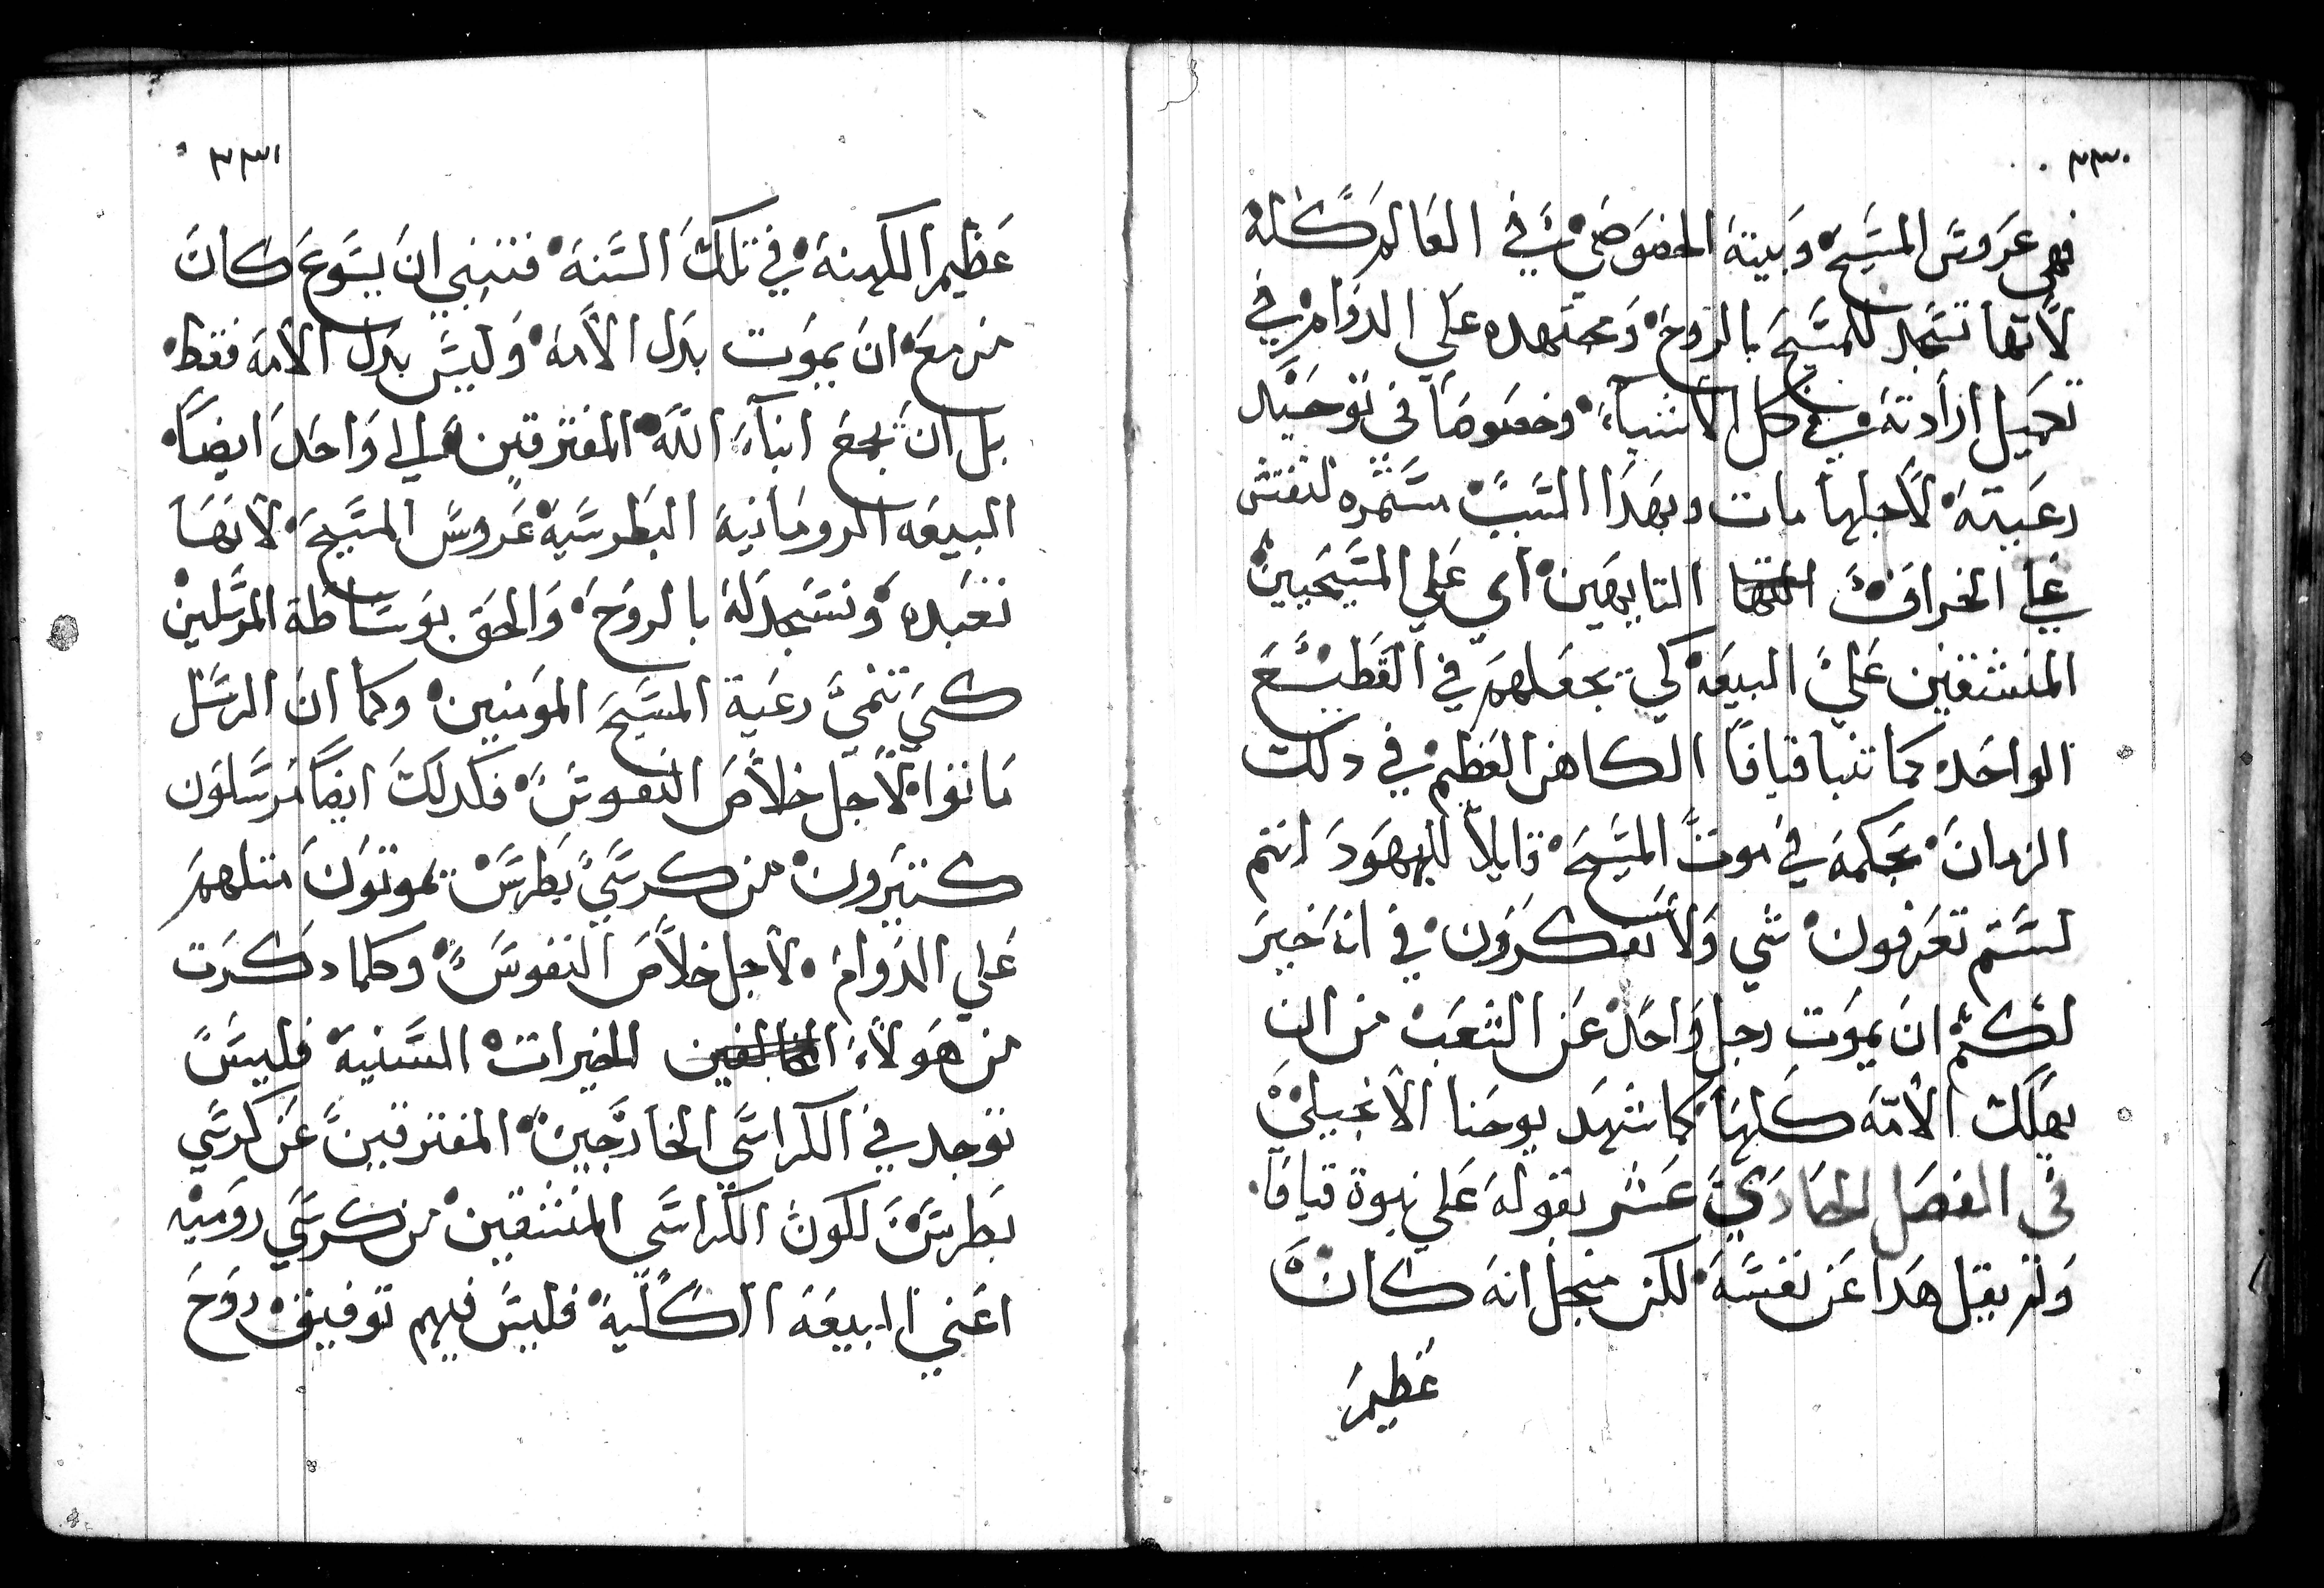 ٢٣٠
فهي عروس المسيح وبيته الخصوصي في العالم كله
لانها تسجد للمسيح بالروح ومجتهده علي الدوام في
تكميل ارادته في كل الاشياء وخصوصا في توحيد
رعيته لاجلها مات وبهدا السبب مستمره لتفتش
علي الخراف التايهين اي علي المسيحيين
المنشقين علي البيعه لكي تجعلهم في القطيع
الواحد كما تنبا قيافا الكاهن العظيم في دلك
الزمان بحكمه في موت المسيح قايلا لليهود انتم
لستم تعرفون شي ولا تفكرون في انه خير
لكم ان يموت رجل واحد عن الشعب من ان
يهلك الامه كلها كما شهد يوحنا الانجيلي
في الفصل الحادي عشر بقوله علي نبوة قيافا
ولم يقل هدا عن نفسه لكن منجل انه كان
عظيم
٢٣١
عظيم الكهنة في تلك السنة فتنبي ان يسوع كان
مزمع ان يموت بدل الامة وليس بدل الامة فقط
بل ان يجمع ابناء الله المفترقين الي واحد ايضا
البيعه الرومانية البطرسية عروس المسيح لانها
تعبده وتسجد له بالروح والحق بوساطة المرسلين
كي تنمي رعية المسيح المومنين وكما ان الرسل
ماتوا لاجل خلاص النفوس فكدلك ايضا مرسلون
كتيرون من كرسي بطرس يموتون متلهم
علي الدوام لاجل خلاص النفوس وكلما دكرت
من هولاء المخالفين الخيرات السنية فليس
توجد في الكراسي الخارجين المفترقين عن كرسي
بطرس لكون الكراسي المنشقين من كرسي رومية
اعني البيعة الكلية فليس فيهم توفيق روح